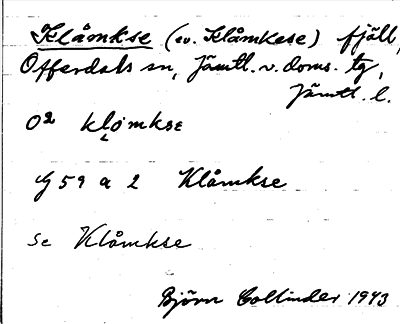 Klåmkse (sv. Klåmkese) fjäll,
Offerdals sn, Jämtl. v. doms. tg,
Jämtl. l.
O² klomkse
G 59 a 2 Klåmkse
se Klåmkse
Björn Collinder 1943